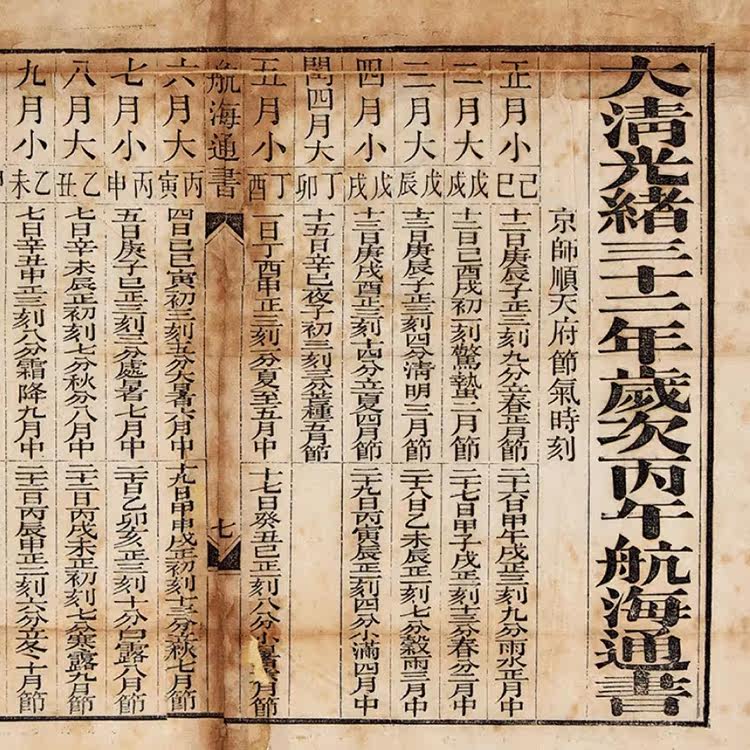 大淸光緒三十二年歲次丙午航海通書
京師順天府節氣時刻
正月小 己巳 十二日庚辰子正三刻九分立春正月節 二十六日甲午戌正三刻九分雨水正月中
二月大 戊戌 十二日己酉戌初一刻驚蟄二月節 二十七日甲子戌正二刻十三分春分二月中
三月大 戊辰 十三日庚辰子正三刻四分清明三月節 二十八日乙未辰正一刻七分穀雨三月中
四月小 戊戌 十三日庚戌酉正三刻十四分立夏四月節 二十九日丙寅辰正一刻四分小滿四月中
閏四月大 丁卯 十五日辛巳夜子初二刻三分芒種五月節
五月小 丁酉 一日丁酉申正二刻一分夏至五月中 十七日癸丑巳正一刻八分小暑六月節
航海通書 七
六月大 丙寅 四日己巳寅初三刻五分大暑六月中 十九日甲申戌正初刻十三分立秋七月節
七月小 丙申 五日庚子巳正二刻三分處暑七月中 二十日乙卯亥正二刻十分白露八月節
八月大 乙丑 七日辛未辰正初刻七分秋分八月中 二十二日丙戌未正初刻七分寒露九月節
九月小 乙未 七日辛丑申正三刻八分霜降九月中 二十二日丙辰申正二刻六分立冬十月節